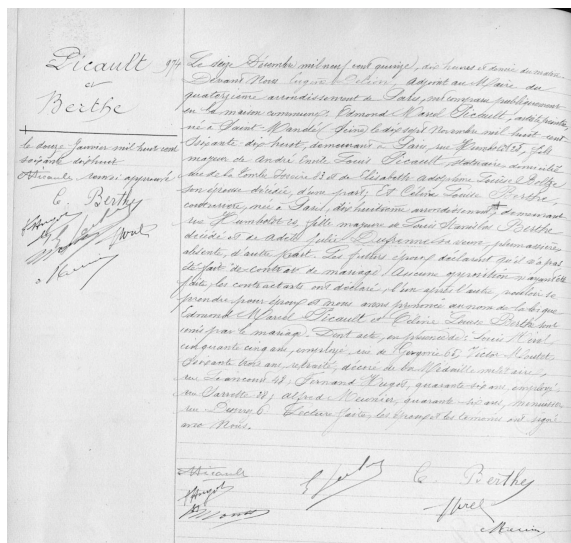 Picault
et
Berthe
974
le douze Janvier mil huit cent
soixante dix huit
C. Berthe
Le seize Décembre mil neuf cent quinze, dix heures et demie du matin
Devant Nous Adjoint au Maire du
quatorzième arrondissement de Paris, ont comparu publiquement
en la maison commune: Edmond Marcel Picault, artiste peintre,
né à Saint-Mandé (Seine) le dix sept Novembre mil huit cent
soixante dix huit, demeurant à Paris, rue Humboldt 25, fils
majeur de André Emile Louis Picault, statuaire, domicilié
rue de la Tombe Issoire 83 et de Elisabeth Adolphine Louise
son épouse décédée, d'une part; Et Céline Louise Berthe,
couturière, née à Paris, dix huitième arrondissement, demeurant
rue Humboldt 25, fille majeure de Louis Stanislas Berthe
décédé et de Adèle Julie sa veuve, plumassière
absente, d'autre part. Les futurs époux déclarent qu'il n'a pas
été fait de contrat de mariage. Aucune opposition n'ayant été
faite, les contractants ont déclaré l'un après l'autre, vouloir se
prendre pour époux et nous avons prononcé au nom de la loi que
Edmond Marcel Picault et Céline Louise Berthe sont
unis par le mariage. Dont acte, en présence de: Louis
cinquante cinq ans, employé, rue de 65; Victor
soixante trois ans, retraité, décoré de la Médaille militaire,
rue 48; Fernand Hugot, quarante six ans, employé
rue Sarrette 28; Alfred Meunier, quarante six ans, menuisier
rue 6. Lecture faite, les époux et les témoins ont signé
avec Nous.
C. Berthe